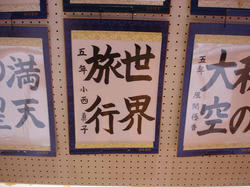 の
大空
五年
世界
旅行
五年 小西
満天
の星